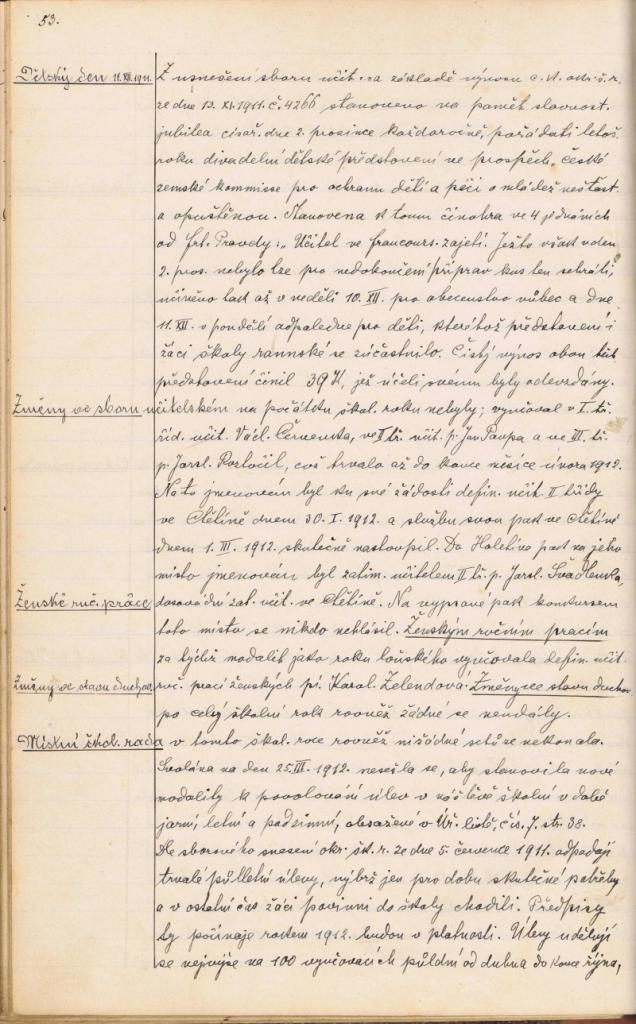 53.
Dětský den 11.XII.1911.
Z usnešení sboru učit. na základě výnosu c. k. okr. š. r.
ze dne 13. XI. 1911. č. 4266 stanoveno na paměť slavnost.
jubilea císař. dne 2. prosince každoročně, pořádati letoš.
roku divadelní dětské představení ve prospěch české
zemské kommisse pro ochranu dětí a péči o mládež nešťast.
a opuštěnou. Stanovena k tomu činohra ve 4 jednáních
od Frt. Pravdy: „Učitel ve francouz. zajetí. Ježto však v den
2. pros. nebylo lze pro nedokončení příprav kus ten sehráti,
učiněno tak až v neděli 10. XII. pro obecenstvo vůbec a dne
11. XII. v pondělí odpoledne pro děti, kteréhož představení i
žáci školy rannské se zúčastnilo. Čistý výnos obou těch
představení činil 39 K, jež účeli svému byly odevzdány.
Změny ve sboru učitelském na počátku škol. roku nebyly; vyučoval v I. tř.
říd. učit. Václ. Červenka, ve II tř. učit. p. Jan Paupa a ve III. tř.
p. Jarsl. Roztočil, což trvalo až do konce měsíce února 1912.
Na to jmenován byl ku své žádosti defin. učit. II třídy
ve Ctětíně dnem 30. I. 1912. a službu svou pak ve Ctětíně
dnem 1. III. 1912. skutečně nastoupil. Do Holetína pak na jeho
místo jmenován byl zatím. učitelem II tř. p. Jarsl. Svadlenka,
dosavadní zat. učit. ve Ctětíně. Na vypsané pak konkursem
toto místo se nikdo nehlásil. Ženským ručním pracím
Ženské ruč. práce
za týchž modalit jako roku loňského vyučovala defin. učit.
ruč. prací ženských pí. Karol. Zelendová. Změny ve stavu duchov.
Změny ve stavu duchov.
po celý školní rok rovněž žádné se neudály.
Místní škol. rada v tomto škol. roce rovněž nižádné schůze nekonala.
Svolána na den 25. III. 1912. nesešla se, aby stanovila nové
modality k povolování úlev v návštěvě školní v době
jarní, letní a podzimní, obsažené v Úř. listě, čís. 7. str. 38.
Dle sborového snesení okr. šk. r. ze dne 5. července 1911. odpadají
trvalé půlletní úlevy, nýbrž jen pro dobu skutečné potřeby
a v ostatní čas žáci povinni do školy choditi. Předpisy
ty počínaje rokem 1912. budou v platnosti. Úlevy udělují
se nejvýše na 100 vyučovacích půldní od dubna do konce října,